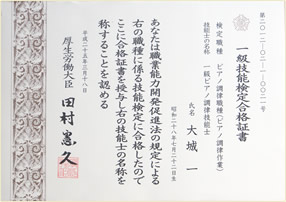 第二〇一二-〇二一-〇〇二一号
一級技能検定合格証書
検定職種 ピアノ調律職種(ピアノ調律作業)
技能士の名称 一級ピアノ調律技能士
氏名 大城 一
昭和二十八年七月二十二日生
あなたは職業能力開発促進法の規定による
右の職種に係る技能検定に合格したので
ここに合格証書を授与し右の技能士の名称を
称することを認める
平成二十五年三月十八日
厚生労働大臣 田村憲久